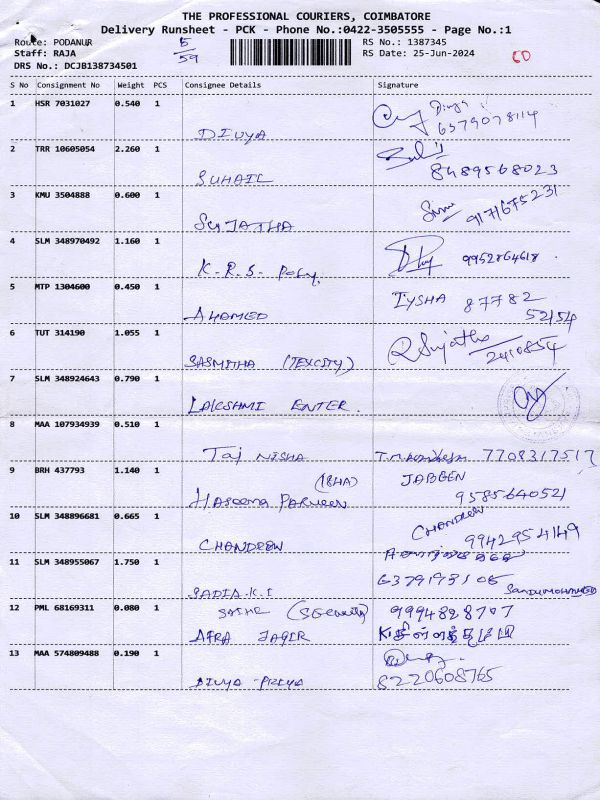 THE PROFESSIONAL COURIERS, COIMBATORE
Delivery Runsheet - PCK - Phone No.:0422-3505555 - Page No.:1
Route: PODANUR
5/59
RS No.: 1387345
Staff: RAJA
RS Date: 25-Jun-2024
CD
DRS No.: DCJB138734501
S No Consignment No Weight PCS Consignee Details Signature
1 HSR 7031027 0.540 1
Divya
6379078114
DIVYA
2 TRR 10605054 2.260 1
8489568023
SUHAIL
3 KMU 3504888 0.600 1
9171675231
SUJATHA
4 SLM 348970492 1.160 1
9952864618
K.R.S. Poly,
5 MTP 1304600 0.450 1
IYSHA 87782
52154
AHAMED
6 TUT 314190 1.055 1
R Sujatha
2410854
SASMITHA (TEXCITY)
7 SLM 348924643 0.790 1
LAKSHMI ENTER.
8 MAA 107934939 0.510 1
Taj NISHA 7708317517
9 BRH 437793 1.140 1
JABEEN
9585640521
Haseena Parveen
10 SLM 348896681 0.665 1
CHANDEEN
9942954149
CHANDEEN
11 SLM 348955067 1.750 1
6379193105
SADIA.K.I
12 PML 68169311 0.080 1
(Security) 9994828707
AFRA
13 MAA 574809488 0.190 1
8220608765
DIVYA-PRIYA